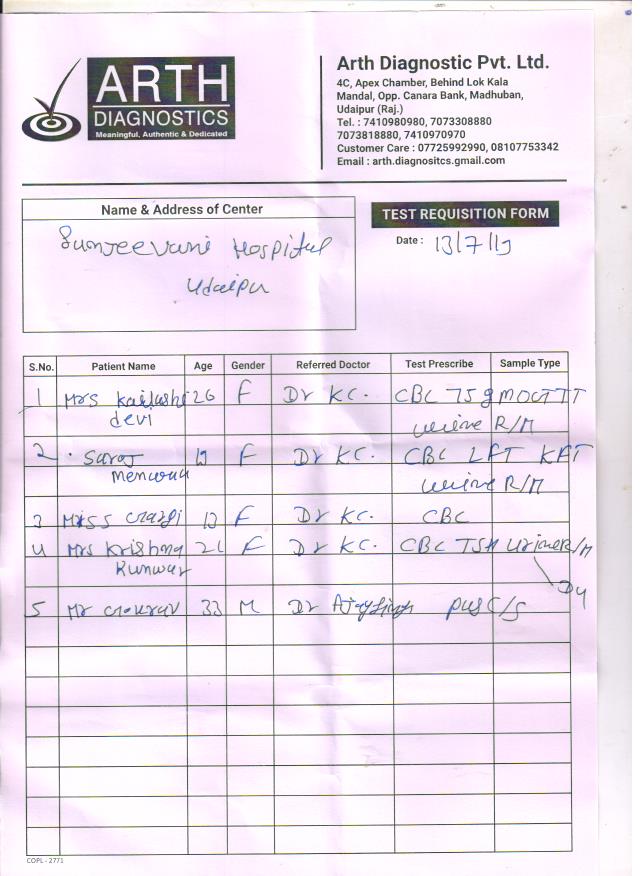 ARTH
DIAGNOSTICS
Meaningful, Authentic & Dedicated
Arth Diagnostic Pvt. Ltd.
4C, Apex Chamber, Behind Lok Kala
Mandal, Opp. Canara Bank, Madhuban,
Udaipur (Raj.)
Tel. : 7410980980, 7073308880
7073818880, 7410970970
Customer Care : 07725992990, 08107753342
Email : arth.diagnositcs.gmail.com
Name & Address of Center
Sunjeevani Hospital
Udaipur
TEST REQUISITION FORM
Date : 13/7/19
S.No. Patient Name Age Gender Referred Doctor Test Prescribe Sample Type
1 Mrs Kailashi 26 F Dr KC. CBC
devi urine R/M
2 Saroj 19 F Dr KC. CBC LFT KFT
urine R/M
3 Miss 13 F Dr KC. CBC
4 Mrs Krishna F Dr KC. CBC TSH Urine R/M
Kunwar
5 Mr 33 M Dr Ajay Singh pus C/S
COPL - 2771